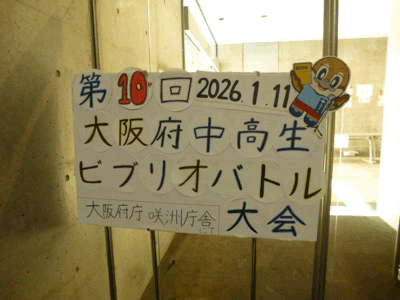 第10回 2026.1.11
大阪府中高生
ビブリオバトル
大阪府庁 咲洲庁舎にて 大会